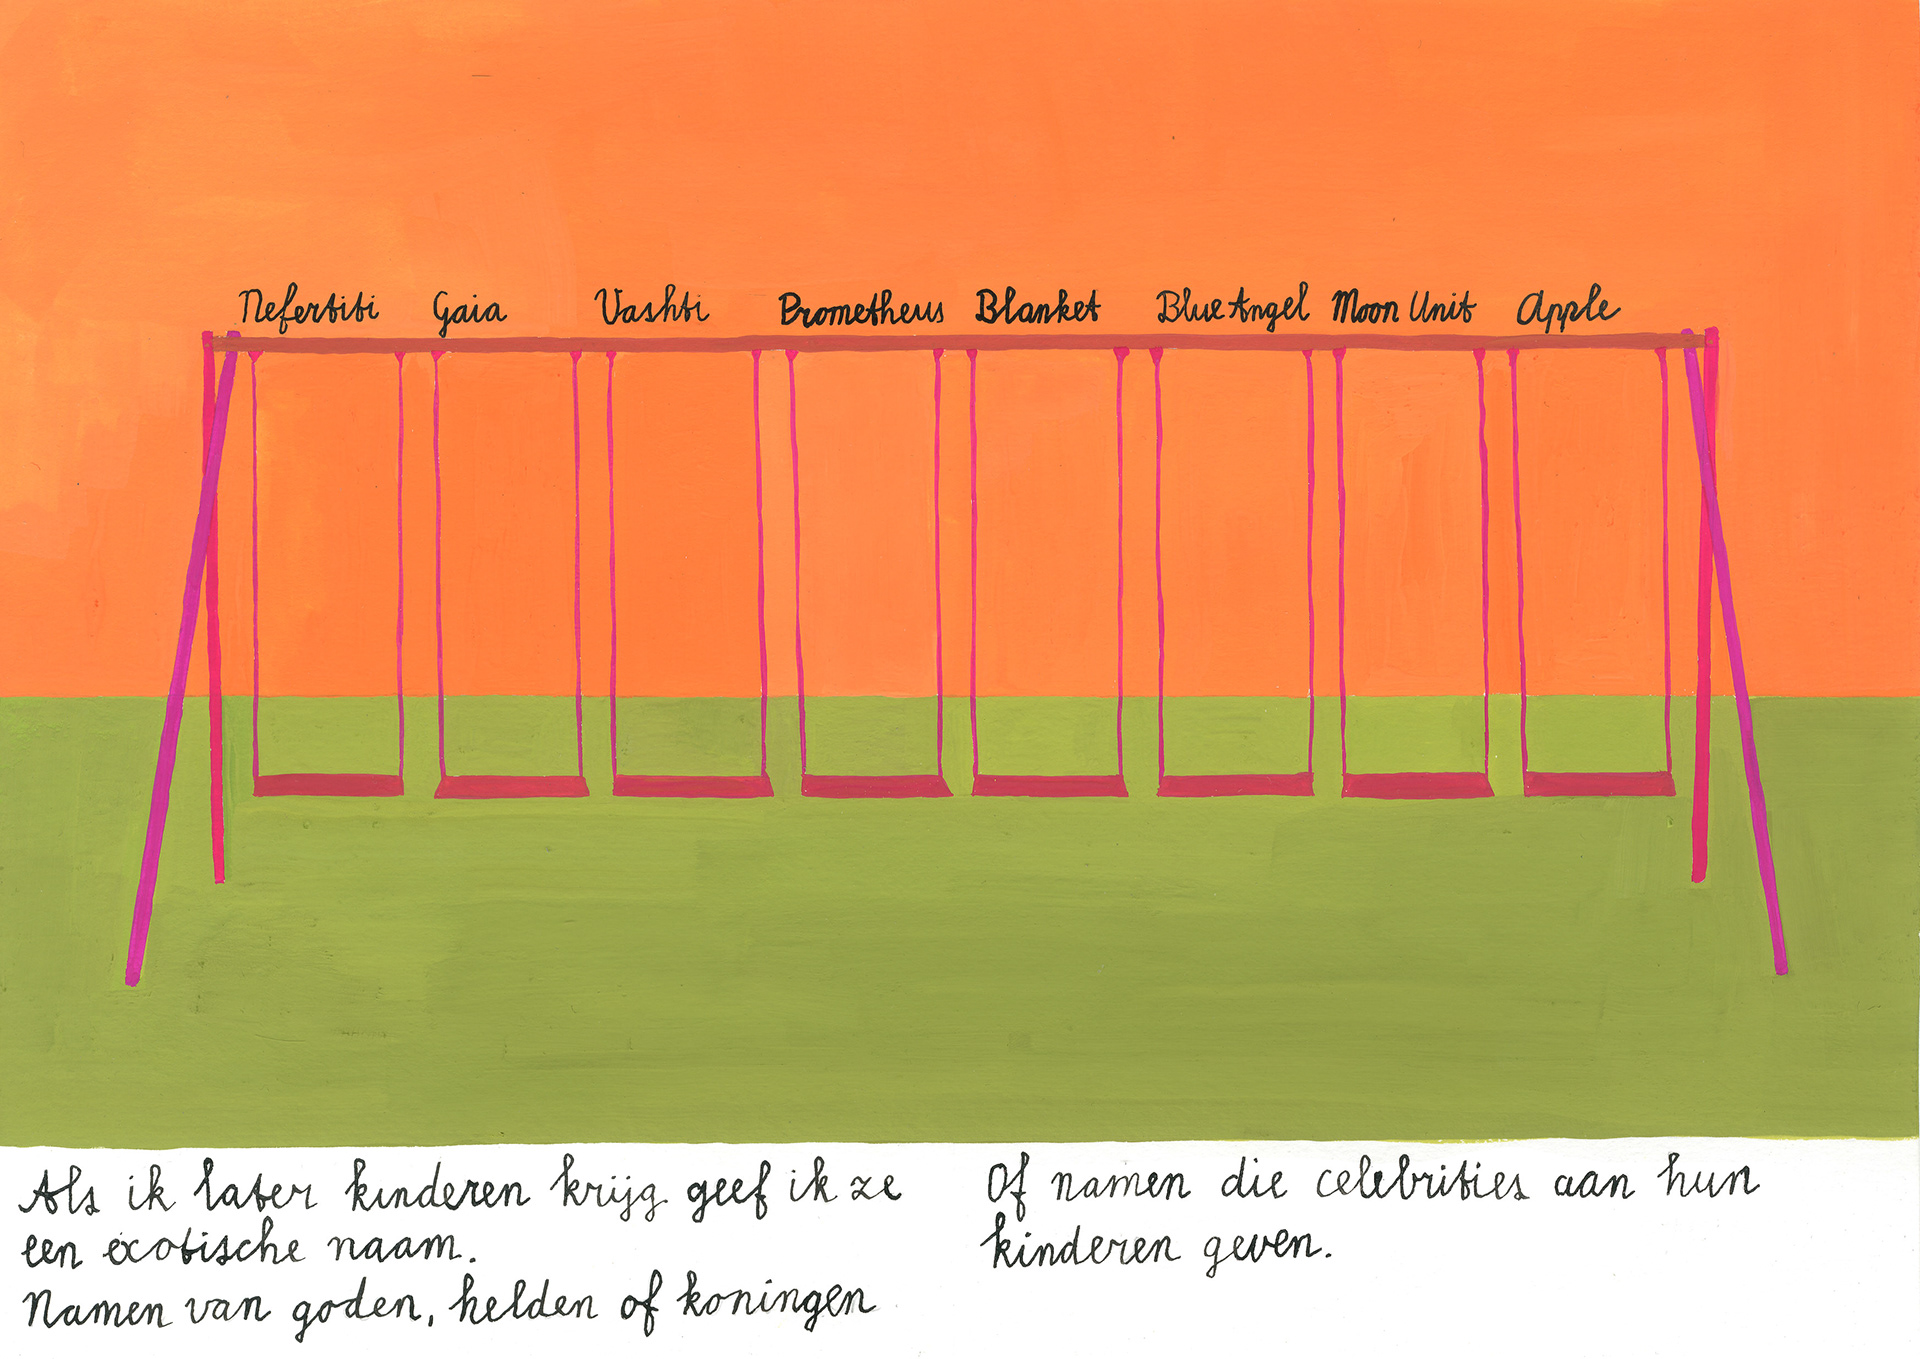 Nefertiti Gaia Vashti Prometheus Blanket Blue Angel Moon Unit Apple
Als ik later kinderen krijg geef ik ze
een exotische naam.
Namen van goden, helden of koningen
Of namen die celebrities aan hun
kinderen geven.